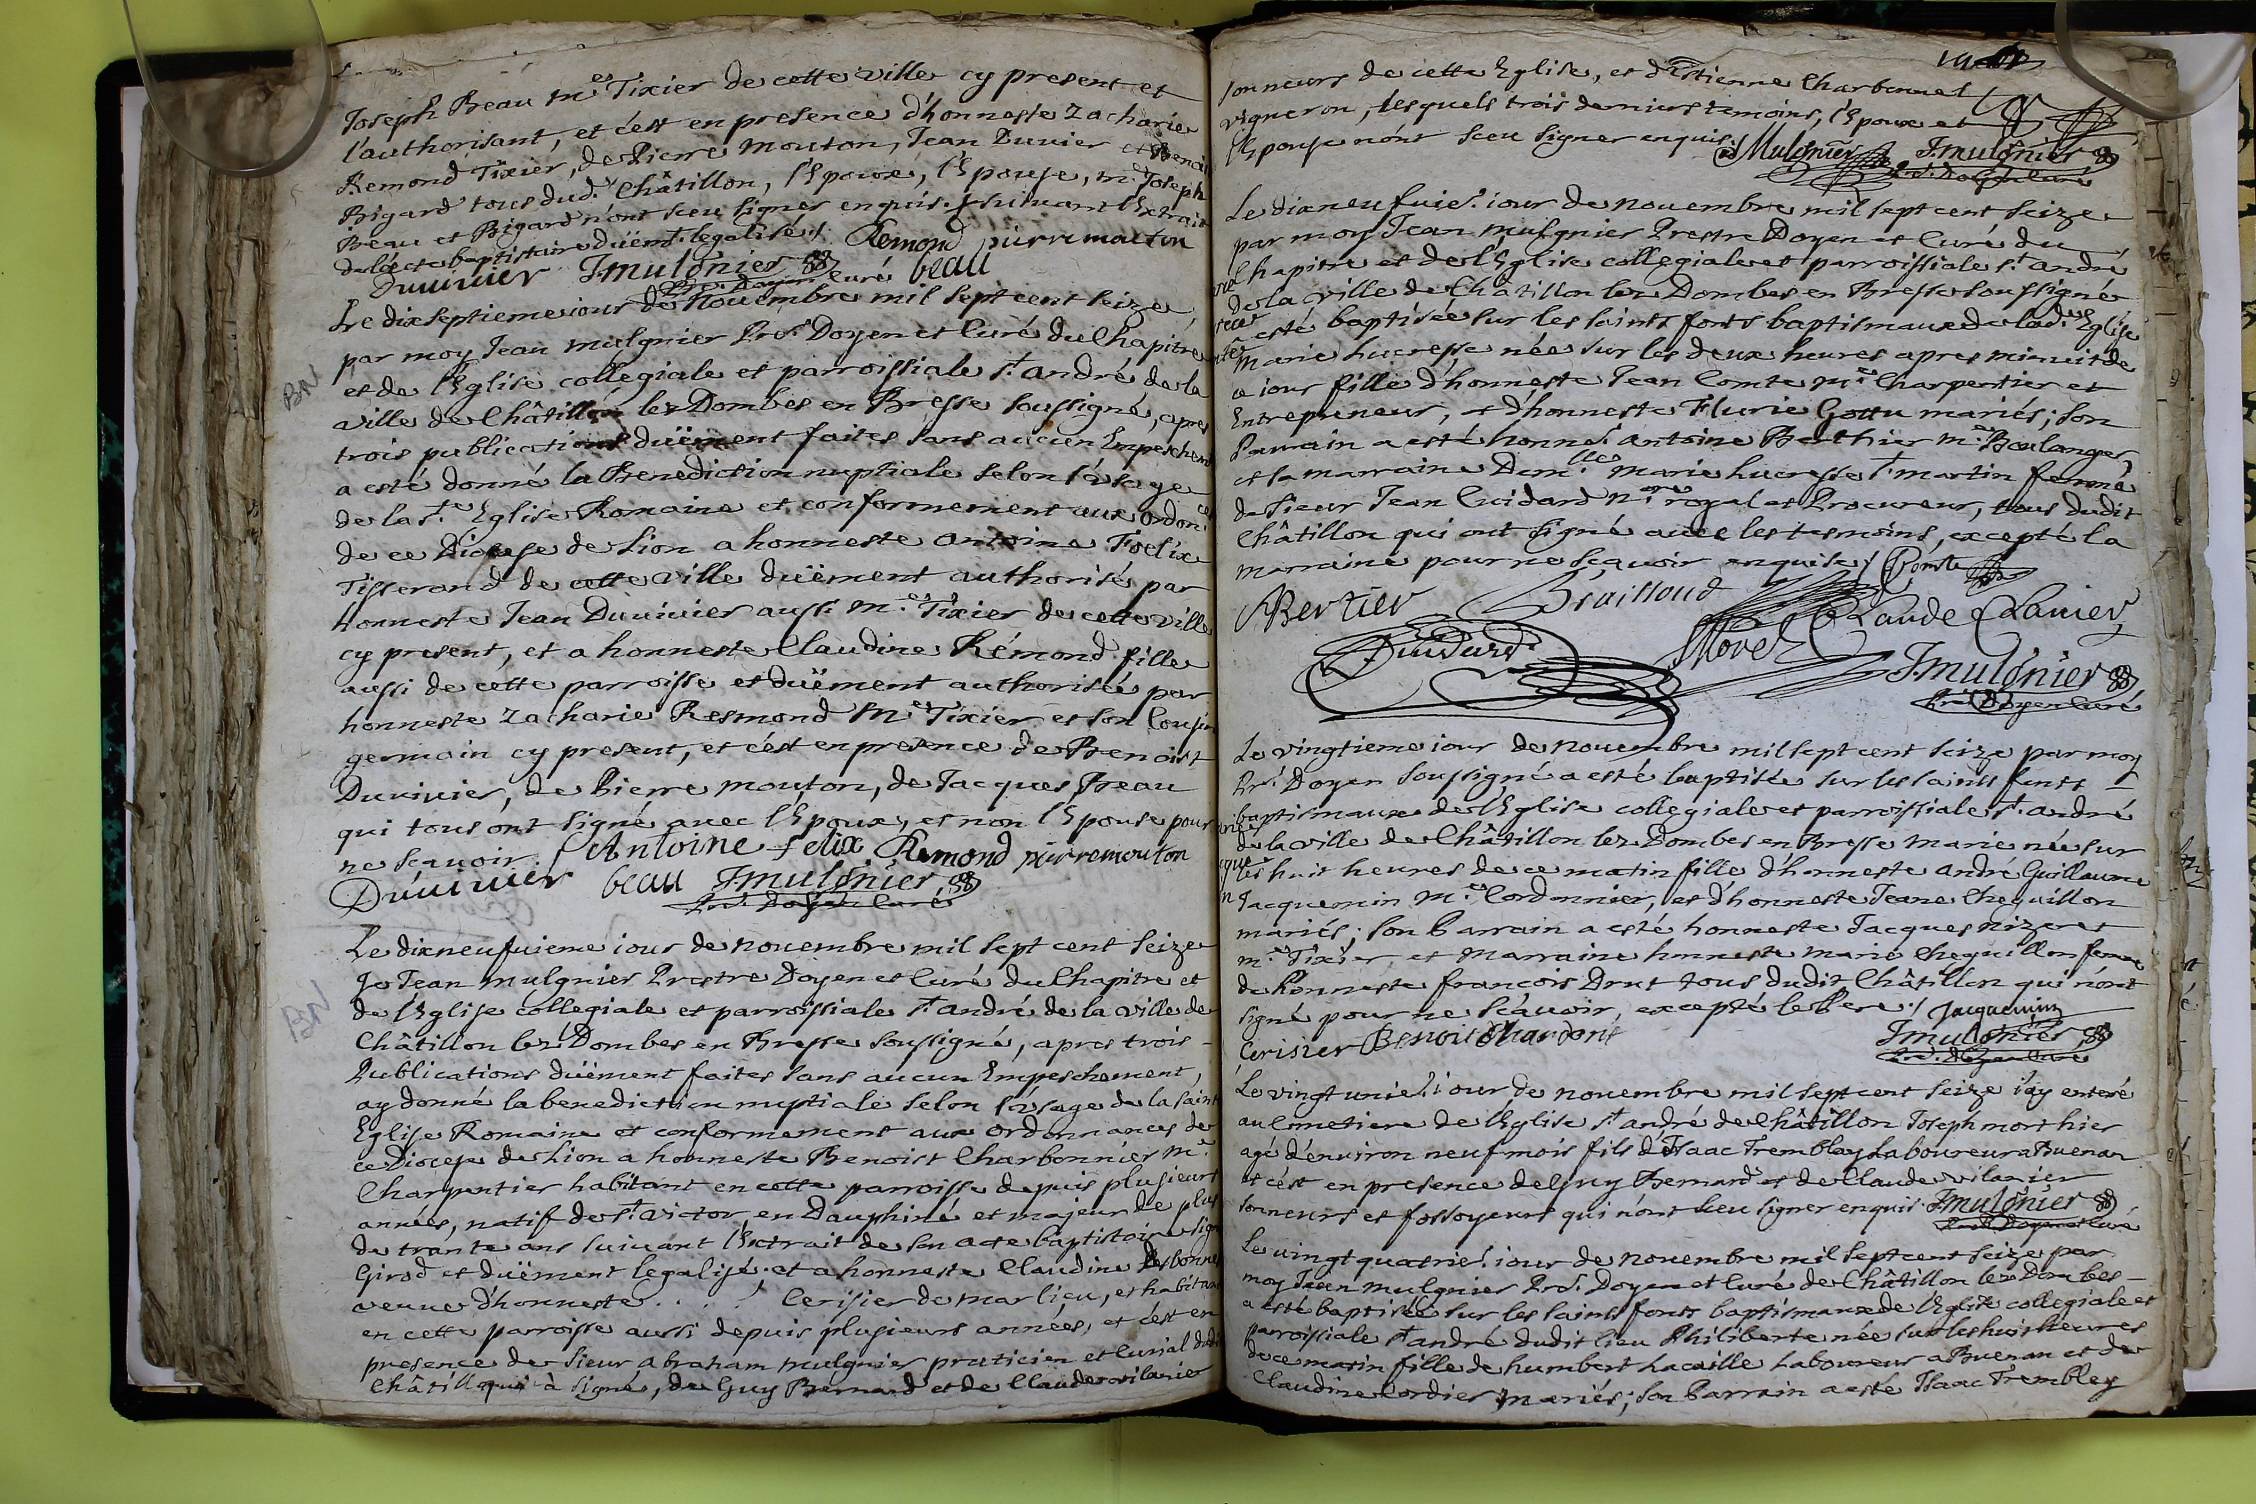 Joseph Beau m.es Tixier de cette ville cy present et
l'authorisant, et c'est en presence d'honneste Zacharie
Remond Tixier, de Pierre mouton, Jean Duvier et Benoist
Bigard tous dud. Châtillon, l'Epoux, l'Epouse, m. Joseph
Beau et Bigard n'ont sceu signer enquis. suivant l'Extrait
de l'acte baptistaire düem.t legalisé /. Remond pierre mouton
Duvivier J mulsnier beau
Pr. Doyen Curé
Le dixseptieme iour de Novembre mil sept cent seize
par moy Jean mulsnier Prs. Doyen et Curé du Chapitre
et de l'Eglise collegiale et parroissiale s.t andré de la
BN
ville de Châtillon lez Dombes en Bresse soussigné, apres
trois publications düement faites sans aucun Empeschem
a esté donné la Benediction nuptiale selon l'üsage
de la s.te Eglise Romaine et conformement aux ordon.ces
de ce Diocese de Lion a honneste antoine Foelix
Tisserand de cette ville düement authorisé par
honneste Jean Duvivier aussi m.es Tixier de cette ville
cy present, et a honneste Claudine Rémond fille
aussi de cette parroisse et düement authorisée par
honneste Zacharie Resmond m.es Tixier et son Cousin
germain cy present, et c'est en presence de Benoist
Duvivier, de Pierre mouton, de Jacques Beau
qui tous ont signé avec l'Epoux, et non l'Epouse pour
ne scavoir. / Antoine felix Remond pierre mouton
Duvivier beau J mulsnier
Prs. Doyen Curé
Le dixneufuieme iour de novembre mil sept cent seize
Je Jean mulsnier Prestre Doyen et Curé du Chapitre et
BN
de l'Eglise collegiale et parroissiale s.t andré de la ville de
Châtillon lez Dombes en Bresse soussigné, apres trois -
Publications düement faites sans aucun Empeschement,
ay donné la benediction nuptiale selon l'üsage de la sainte
Eglise Romaine et conformement aux ordonnances de
ce Diocese de Lion a honneste Benoist Charbonnier m.e
Charpentier habitant en cette parroisse depuis plusieurs
années, natif de s.t victor en Dauphiné et majeur de plus
de trante ans suivant l'Extrait de son acte baptistaire signé
Girod et düement legalisé. et a honneste Claudine
veuve d'honneste . . . . / Cerisier de marlieu, et habitante
en cette parroisse aussi depuis plusieurs années, et c'est en
presence de sieur abraham mulsnier praticien et Curial dudit
Châtillon qui à signé, de Guy Bernard et de Claude vilanier
sonneurs de cette Eglise, et d'Estienne Charbonnet
vigneron, lesquels trois derniers temoins, l'Epoux et
l'Epouse n'ont sceu signer enquis. Mulsnier J. mulsnier
Prs. Doyen Curé
Le dixneufuie. iour de novembre mil sept cent seize
par moy Jean mulsnier Prestre Doyen et Curé du
Chapitre et de l'Eglise collegiale et parroissiale s.t andré
de la ville de Châtillon lez Dombes en Bresse soussigné
a esté baptisée sur les saints fonts baptismaux de lad. Eglise
Marie lucresse née sur les deux heures apres minuit de
ce iour fille d'honneste Jean Comte m.e Charpentier et
Entrepreneur, et d'honneste Flurie Gottu mariés; son
Parrain a esté honne. antoine Berthier m.e Boulanger,
et sa marraine Dem.lle Marie lucresse s.t martin femme
de sieur Jean Cuidard n.re royal et Procureur, tous dudit
Châtillon qui ont signé avec les tesmoins, excepté la
marraine pour ne scavoir enquise / Comte
Bertier Braissoud
Claude Clanier
Morel
J. mulsnier
Prs. Doyen Curé
Le vingtieme iour de novembre mil sept cent seize par moy
Prs. Doyen soussigné a esté baptisée sur les saints fonts
baptismaux de l'Eglise collegiale et parroissiale s.t andré
de la ville de Châtillon lez Dombes en Bresse Marie née sur
les huit heures de ce matin fille d'honneste andré Guillaume
Jacquemin m.e Cordonnier, et d'honneste Jeane Cheguillon
mariés; son Parrain a esté honneste Jacques nizeret
m.e Tixier, et Marraine honneste marie Cheguillon femme
de honneste francois Drut tous dudit Châtillon qui n'ont
signé pour ne scavoir, excepté le Pere. / Jacquemin
Cerisier Benoit Chardont J mulsnier
Prs. Doyen Curé
Le vingt unie. iour de novembre mil sept cent seize i'ay enteré
au Cimetiere de l'Eglise s.t andré de Châtillon Joseph mort hier
agé d'environ neuf mois fils d'Isaac Tremblay Laboureur a Buenan
et c'est en presence de Guy Bernard et de Claude vilanier
sonneurs et fossoyeurs qui n'ont sceu signer enquis. J. mulsnier
Prs. Doyen Curé
Le vingt quatrie. iour de novembre mil sept cent seize par
moy Jean mulsnier Prs. Doyen et Curé de Châtillon lez Dombes -
a esté baptisée sur les saints fonts baptismaux de l'Eglise collegiale et
parroissiale s.t andré dudit lieu Philiberte née sur les huit heures
de ce matin fille de humbert Lacaille Laboureur a Buenan et de
Claudine Cordier mariés; son Parrain a esté Isaac Trembley